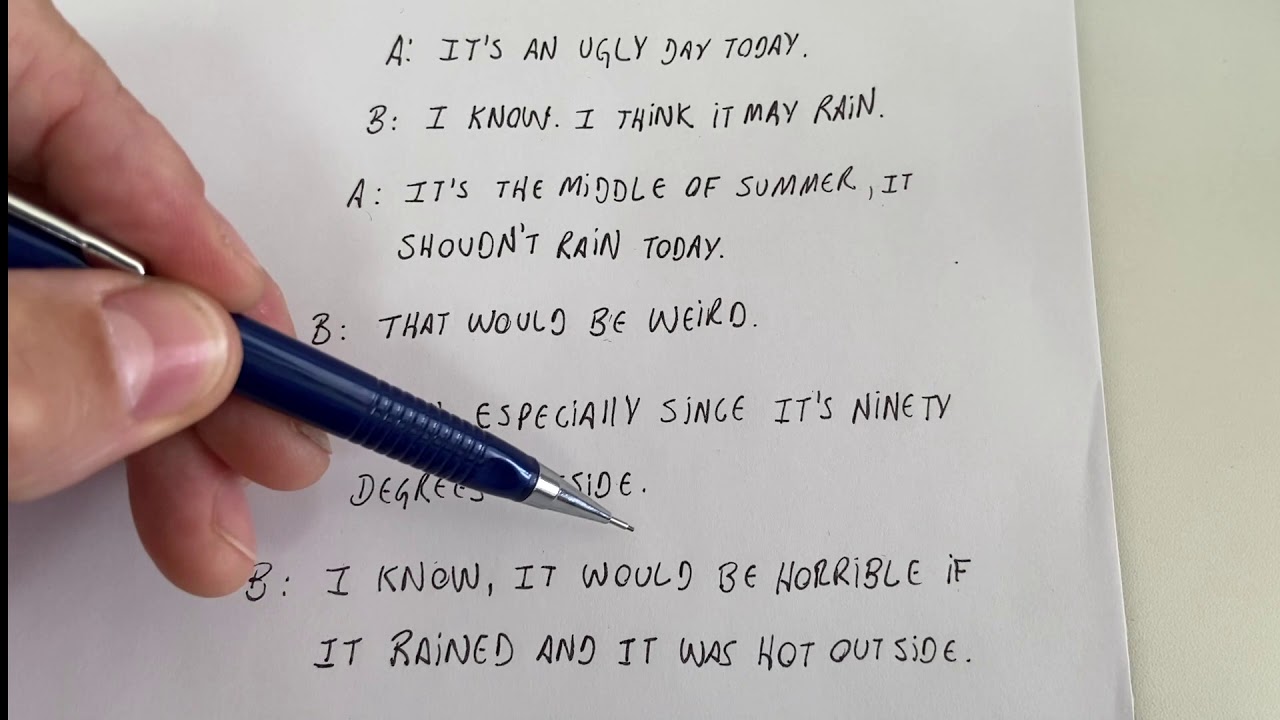 A: IT'S AN UGLY DAY TODAY.
B: I KNOW. I THINK IT MAY RAIN.
A: IT'S THE MIDDLE OF SUMMER, IT
SHOUDN'T RAIN TODAY.
B: THAT WOULD BE WEIRD.
ESPECIALLY SINCE IT'S NINETY
DEGREES SIDE.
B: I KNOW, IT WOULD BE HORRIBLE IF
IT RAINED AND IT WAS HOT OUTSIDE.